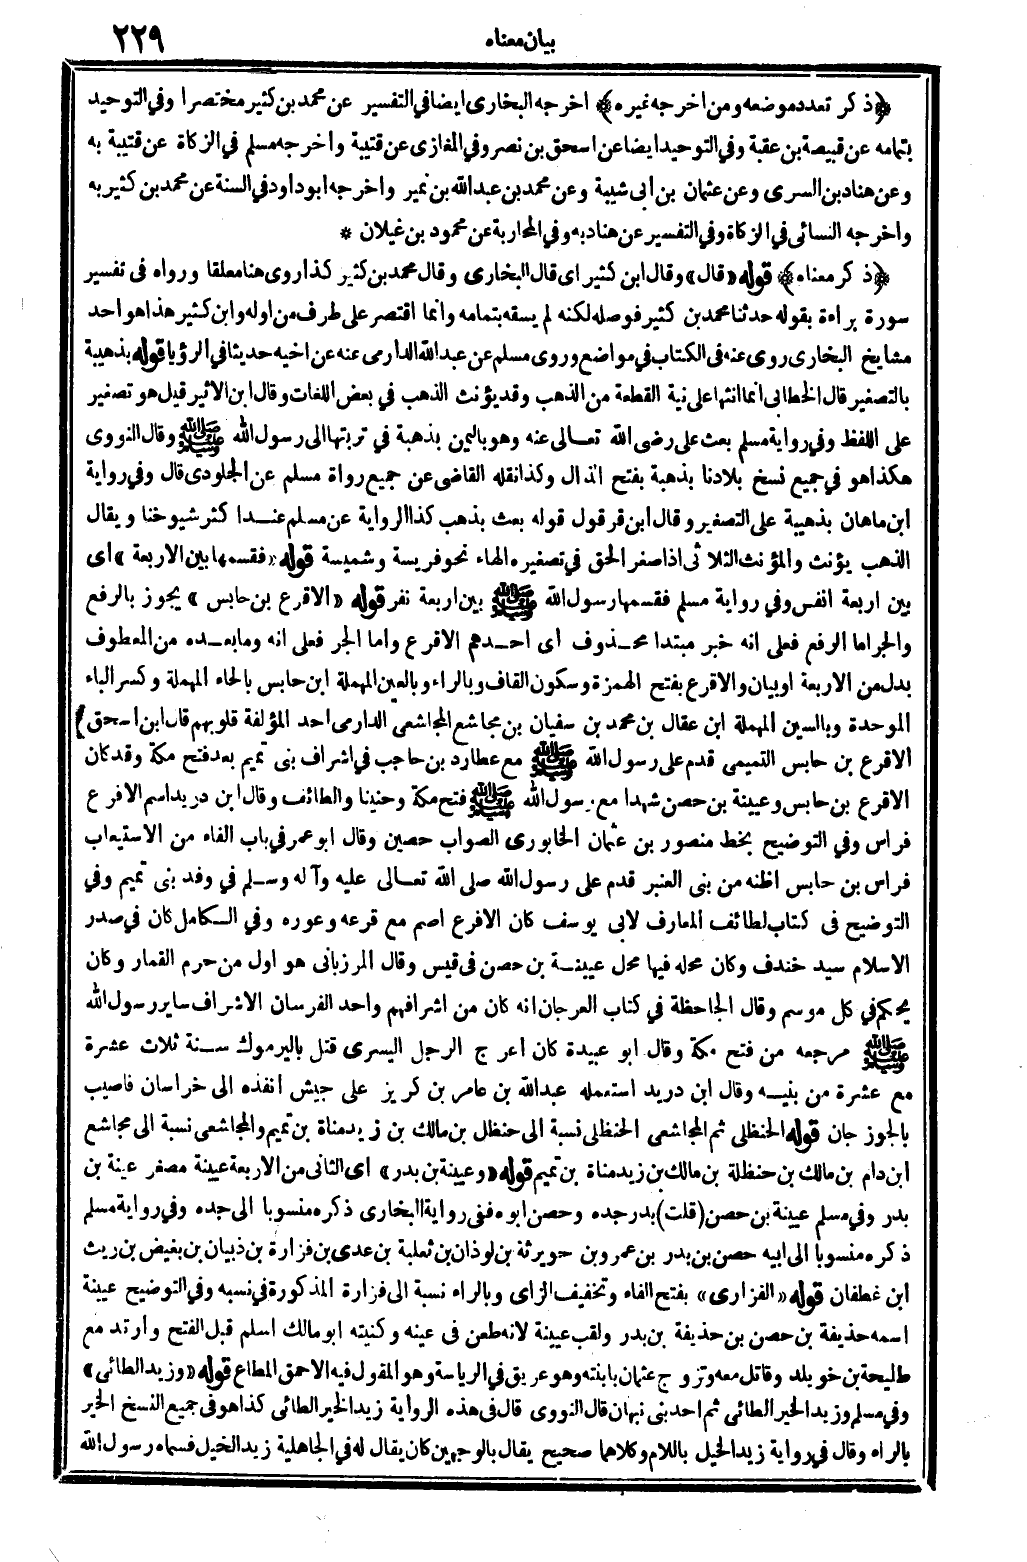 بيان معناه ٢٢٩
﴿ذكر تعدد موضعه ومن اخرجه غيره﴾ اخرجه البخارى ايضا في التفسير عن محمد بن كثير مختصرا وفي التوحيد
بتمامه عن قبيصة بن عقبة وفي التوحيد ايضا عن اسحق بن نصر وفي المغازى عن قتيبة واخرجه مسلم في الزكاة عن قتيبة به
وعن هناد بن السرى وعن عثمان بن ابى شيبة وعن محمد بن عبدالله بن نمير واخرجه ابو داود في السنة عن محمد بن كثير به
واخرجه النسائى في الزكاة وفي التفسير عن هناد به وفي المحاربة عن محمود بن غيلان *
﴿ذكر معناه﴾ قوله «قال» وقال ابن كثير اى قال البخارى وقال محمد بن كثير كذا روى هنا معلقا ورواه فى تفسير
سورة براءة بقوله حدثنا محمد بن كثير فوصله لكنه لم يسقه بتمامه وانما اقتصر على طرف من اوله وابن كثير هذا هو احد
مشايخ البخارى روى عنه فى الكتاب في مواضع وروى مسلم عن عبدالله الدارمى عنه عن اخيه حديثا في الرؤيا قوله بذهيبة
بالتصغير قال الخطابى انما انثها على نية القطعة من الذهب وقد يؤنث الذهب في بعض اللغات وقال ابن الاثير قيل هو تصغير
على اللفظ وفي رواية مسلم بعث على رضى الله تعــالى عنه وهو باليمن بذهبة في تربتها الى رسول الله ﷺ وقال النووى
هكذا هو في جميع نسخ بلادنا بذهبة بفتح الذال وكذا نقله القاضى عن جميع رواة مسلم عن الجلودى قال وفي رواية
ابن ماهان بذهيبة على التصغير وقال ابن قرقول قوله بعث بذهب كذا الرواية عن مسلم عنــد اكثر شيوخنا ويقال
الذهب يؤنث والمؤنث الثلاثى اذا صغر الحق في تصغيره الهاء نحو فريسة وشميسة قوله «فقسمها بين الاربعة» اى
بين اربعة انفس وفي رواية مسلم فقسمها رسول الله ﷺ بين اربعة نفر قوله «الاقرع بن حابس» يجوز بالرفع
والجر اما الرفع فعلى انه خبر مبتدا محــذوف اى احــدهم الاقرع واما الجر فعلى انه وما بعــده من المعطوف
بدل من الاربعة او بيان والاقرع بفتح الهمزة وسكون القاف وبالراء وبالعين المهملة ابن حابس بالحاء المهملة وكسر الباء
الموحدة وبالسين المهملة ابن عقال بن محمد بن سفيان بن مجاشع المجاشعى الدارمى احد المؤلفة قلوبهم قال ابن اسحق
الاقرع بن حابس التميمى قدم على رسول الله ﷺ مع عطارد بن حاجب في اشراف بنى تميم بعد فتح مكة وقد كان
الاقرع بن حابس وعيينة بن حصن شهدا مع رسول الله ﷺ فتح مكة وحنينا والطائف وقال ابن دريد اسم الاقرع
فراس وفي التوضيح بخط منصور بن عثمان الخابورى الصواب حصين وقال ابو عمر في باب الفاء من الاستيعاب
فراس بن حابس اظنه من بنى العنبر قدم على رسول الله صلى الله تعــالى عليه وآله وسـلم في وفد بنى تميم وفي
التوضيح فى كتاب لطائف المعارف لابى يوسف كان الاقرع اصم مع قرعه وعوره وفي الكامل كان في صدر
الاسلام سيد خندف وكان محله فيها محل عيينــة بن حصن فى قيس وقال المرزبانى هو اول من حرم القمار وكان
يحكم في كل موسم وقال الجاحظة في كتاب العرجان انه كان من اشرافهم واحد الفرسان الاشراف ساير رسول الله
ﷺ مرجعه من فتح مكة وقال ابو عبيدة كان اعرج الرجل اليسرى قتل باليرموك ســنة ثلاث عشرة
مع عشرة من بنيــه وقال ابن دريد استعمله عبدالله بن عامر بن كريز على جيش انفذه الى خراسان فاصيب
بالجوزجان قوله الحنظلى ثم المجاشعى الحنظلى نسبة الى حنظل بن مالك بن زيد مناة بن تميم والمجاشعى نسبة الى مجاشع
ابن دام بن مالك بن حنظلة بن مالك بن زيد مناة بن تميم قوله «وعيينة بن بدر» اى الثانى من الاربعة عيينة مصغر عينة بن
بدر وفي مسلم عيينة بن حصن (قلت) بدر جده وحصن ابوه ففى رواية البخارى ذكره منسوبا الى جده وفي رواية مسلم
ذكره منسوبا الى ابيه حصن بن بدر بن عمرو بن حويرثة بن لوذان بن ثعلبة بن عدى بن فزارة بن ذبيان بن بغيض بن ريث
ابن غطفان قوله «الفزارى» بفتح الفاء وتخفيف الزاى وبالراء نسبة الى فزارة المذكورة في نسبه وفي التوضيح عيينة
اسمه حذيفة بن حصن بن حذيفة بن بدر ولقب عيينة لانه طعن فى عينه وكنيته ابو مالك اسلم قبل الفتح وارتد مع
طليحة بن خويلد وقاتل معه وتزوج عثمان بابنته وهو عريق في الرياسة وهو المقول فيه الاحمق المطاع قوله «وزيد الطائى»
وفي مسلم وزيد الخير الطائى ثم احد بنى نبهان قال النووى قال فى هذه الرواية زيد الخير الطائى كذا هو فى جميع النسخ الخير
بالراء وقال في رواية زيد الخيل باللام وكلاهما صحيح يقال بالوجهين كان يقال له في الجاهلية زيد الخيل فسماه رسول الله